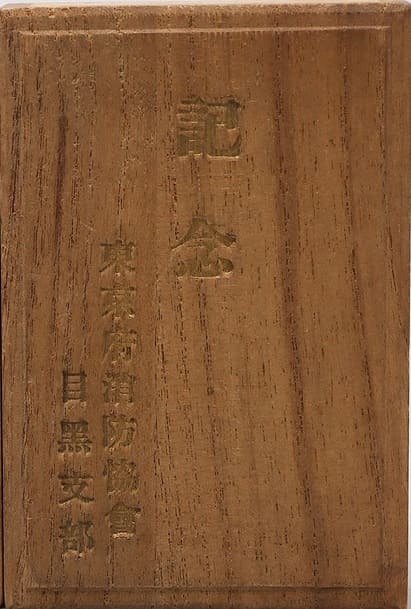 記念
東京府消防協會
目黑支部